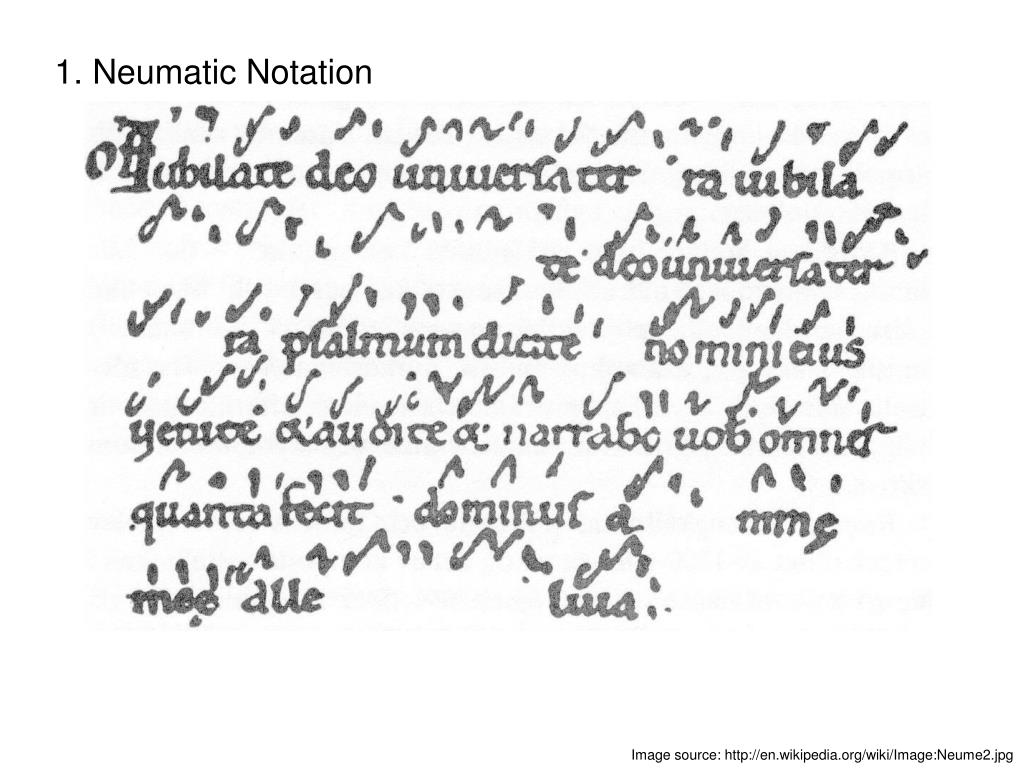 1. Neumatic Notation
Of Iubilate deo uniuersa ter ra iubila
te deo uniuersa ter
ra psalmum dicite nomini eius
uenite & audite & narrabo uob omnes
quanta fecit dominus a nime
meę alle luia.
Image source: http://en.wikipedia.org/wiki/Image:Neume2.jpg